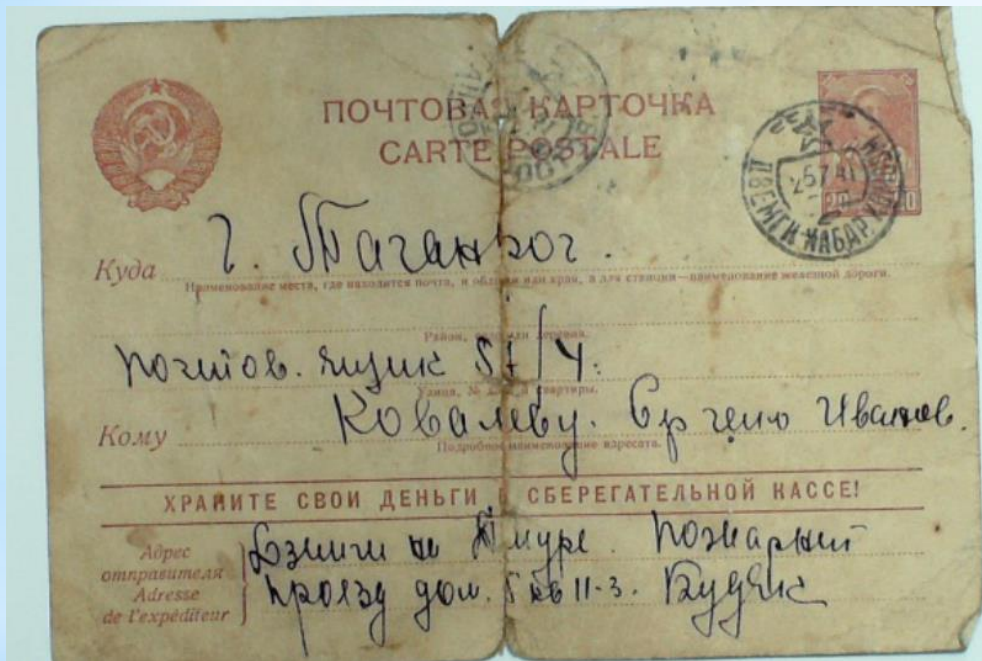 ПОЧТОВАЯ КАРТОЧКА
CARTE POSTALE
20
25 7 41
ДЗЕМГИ ХАБАР
Куда г. Таганрог.
Наименование места, где находится почта, и области или края, а для станции—наименование железной дороги.
Район, село или деревня.
почтов. ящик 57/4.
Улица, № дома и квартиры.
Кому Ковалеву. Сергею Иванов.
Подробное наименование адресата.
ХРАНИТЕ СВОИ ДЕНЬГИ В СБЕРЕГАТЕЛЬНОЙ КАССЕ!
Адрес отправителя
Adresse de l'expéditeur
Дземги на Амуре. Пожарный
проезд дом. 5 кв 11-3. Будяк